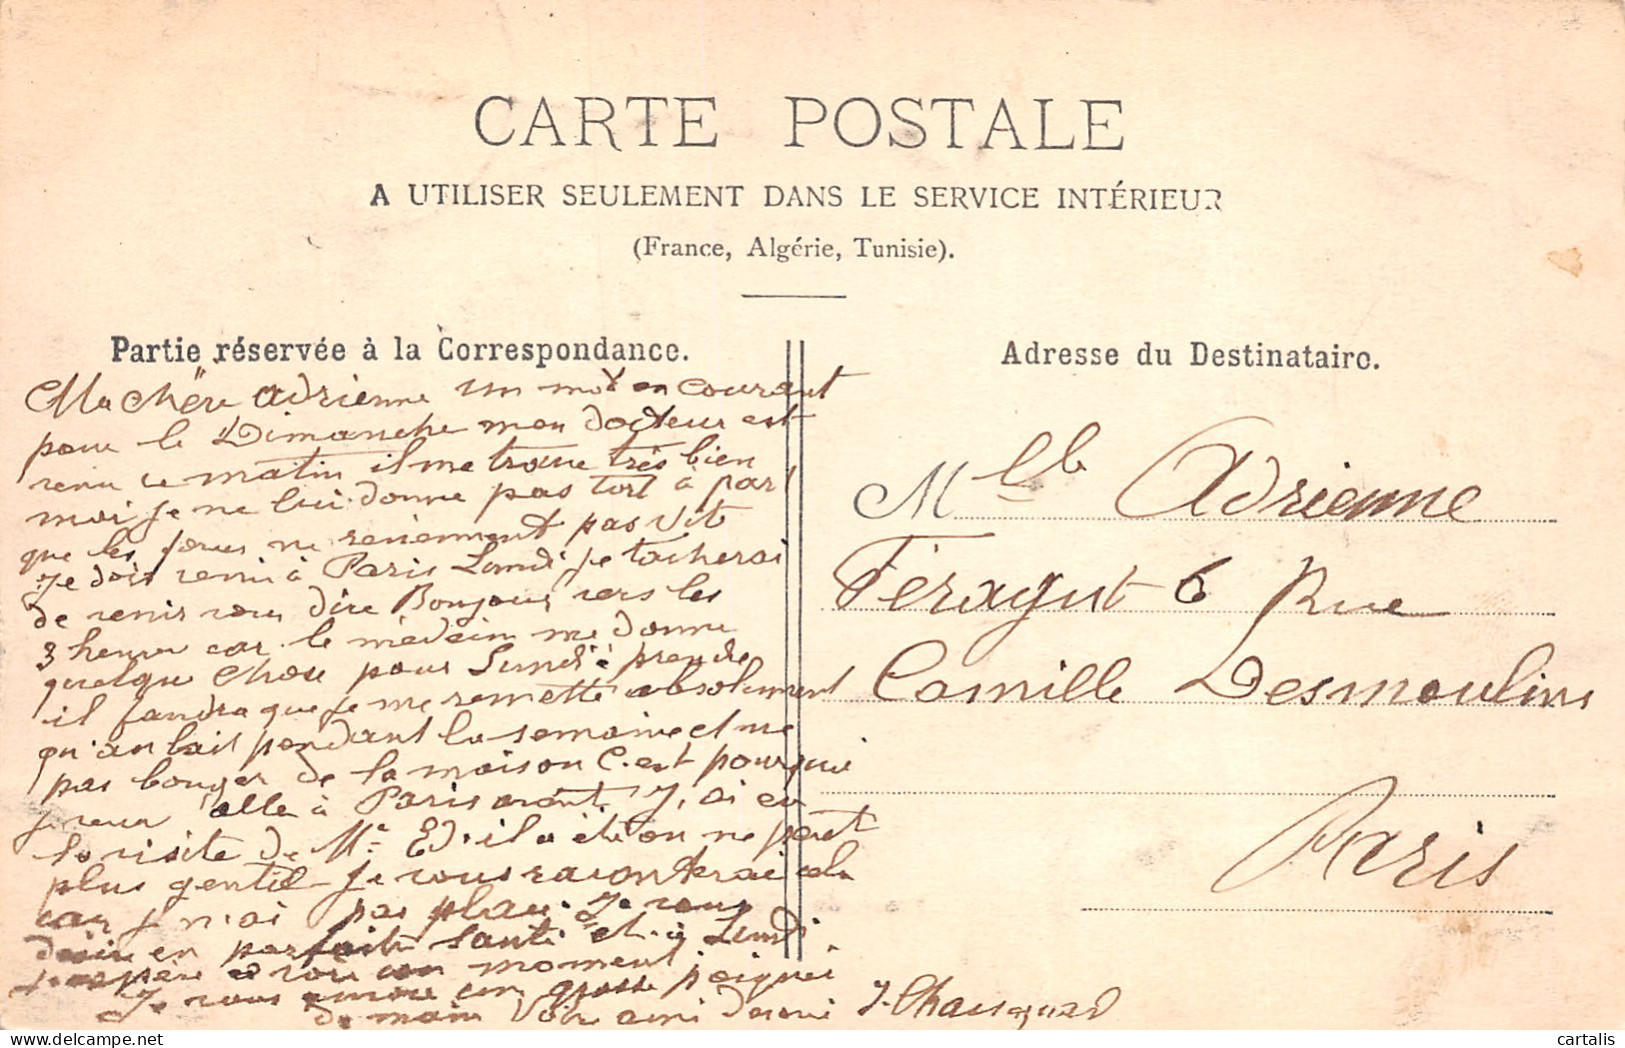 CARTE POSTALE
A UTILISER SEULEMENT DANS LE SERVICE INTÉRIEUR
(France, Algérie, Tunisie).
Partie réservée à la Correspondance.
Ma chère Adrienne un mot en courant
pour le Dimanche mon docteur est
venu ce matin il me trouve très bien
moi je ne lui donne pas tort à part
que les forces ne reviennent pas vite
Je dois venir à Paris Lundi je tacherai
de venir vous dire Bonjour vers les
3 heures car le médecin me donne
quelque chose pour Lundi à prendre
il faudra que je me remette absolument
qu'au lait pendant la semaine et ne
pas bouger de la maison C'est pourquoi
je veux aller à Paris avant J'ai eu
la visite de Mr Ed. il a été on ne peut
plus gentil je vous raconterai cela
car je n'ai pas place. Je vous
désire en parfaite santé et à Lundi
j'espère vous voir un moment
Je vous envoie une grosse poignée
de main Votre ami
Adresse du Destinataire.
Mlle Adrienne
Féragut 6 Rue
Camille Desmoulins
Paris
cartalis